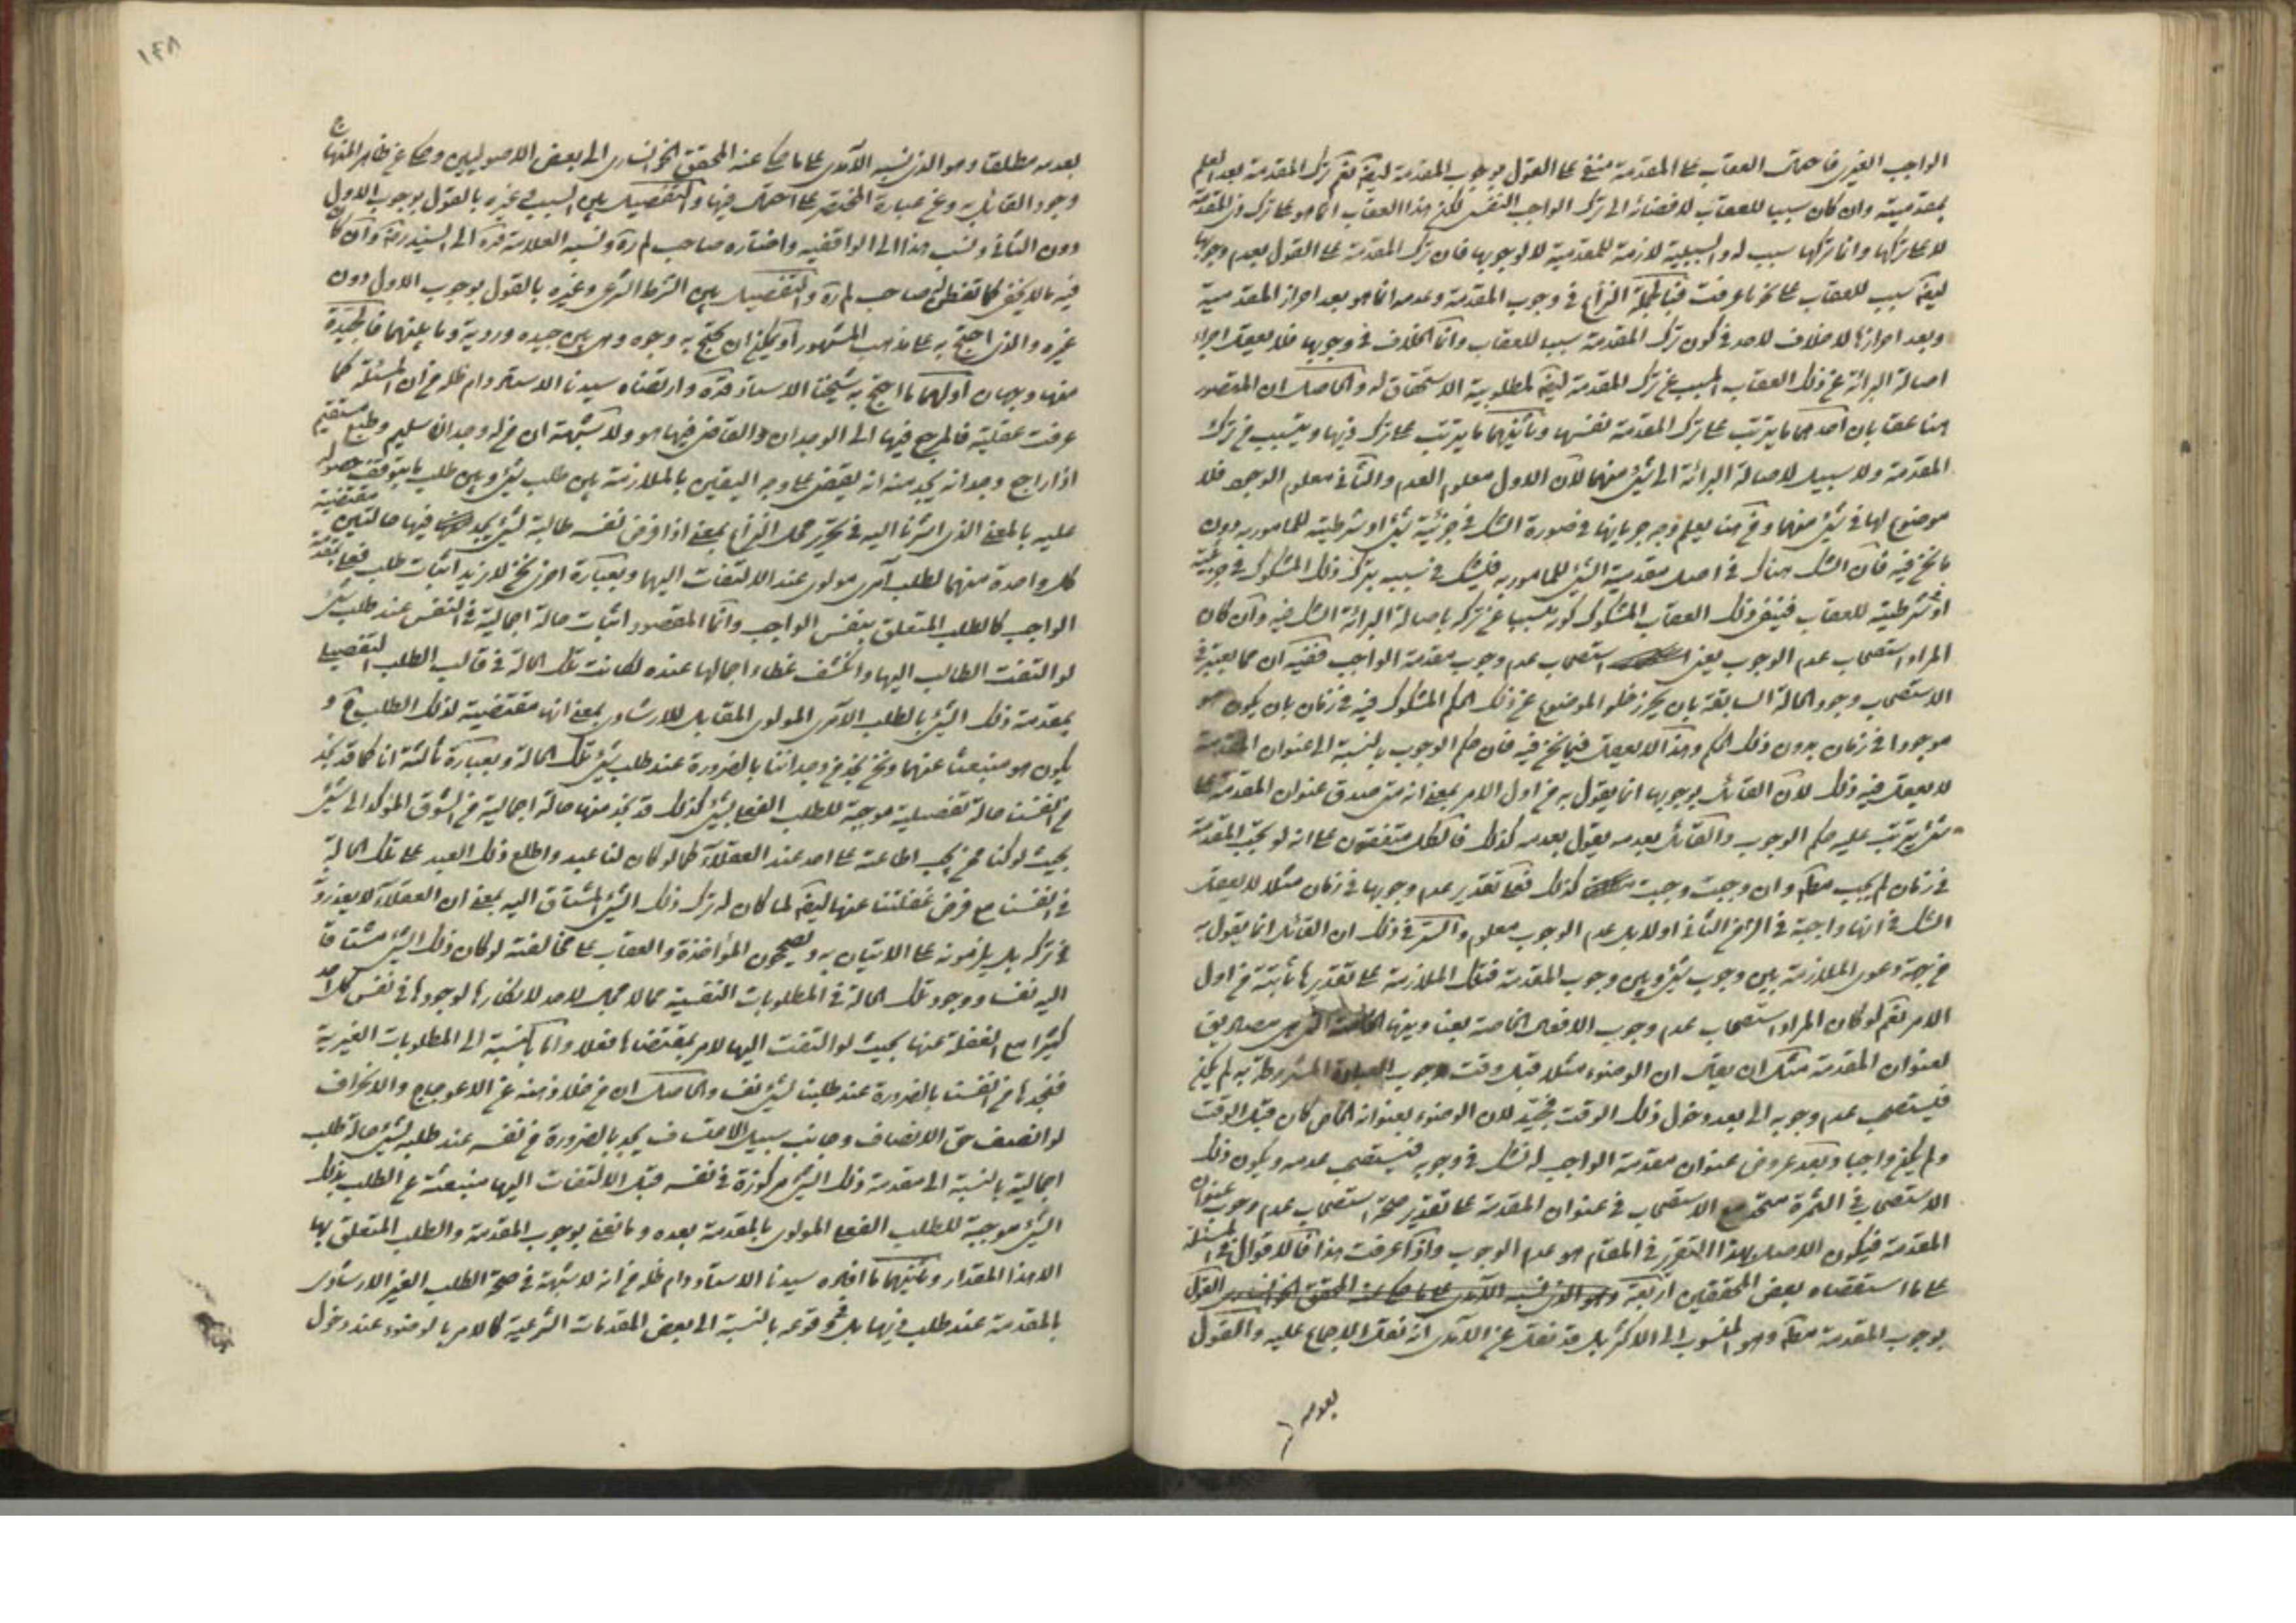 الواجب الغيري فاحتمال العقاب على المقدمة منفي على القول بوجوب المقدمة ايضا نعم ترك المقدمة بعد العلم
بمقدميته وان كان سببا للعقاب لافضائه الى ترك الواجب النفسي لكن هذا العقاب انما هو على ترك ذي المقدمة
لا على تركها وانما تركها سبب له والسببية لازمة للمقدمية لا لوجوبها فان ترك المقدمة على القول بعدم وجوبها
ايضا سبب للعقاب على نحو ما عرفت فبالجملة النزاع في وجوب المقدمة وعدمه انما هو بعد احراز المقدمية
وبعد احرازها لا خلاف لاحد في كون ترك المقدمة سببا للعقاب وانما الخلاف في وجوبها فلا يعقل اجراء
اصالة البرائة عن ذلك العقاب المسبب عن ترك المقدمة ايضا لمطلوبية الاستحقاق له والحاصل ان المتصور
هنا عقابان احدهما ما يترتب على ترك المقدمة نفسها وثانيهما ما يترتب على ترك ذيها ويتسبب من ترك
المقدمة ولا سبيل لاصالة البرائة الى شيء منهما لان الاول معلوم العدم والثاني معلوم الوجود فلا
موضوع لها في شيء منهما ومن هنا يعلم وجه جريانها في صورة الشك في جزئية شيء او شرطيته للمامور به دون
ما نحن فيه فان الشك هناك في اصل مقدمية الشيء للمامور به فيشك في تسبيب ترك ذلك المشكوك في جزئيته
او شرطيته للعقاب فينفى ذلك العقاب المشكوك كونه مسببا عن تركه باصالة البرائة الشك فيه وان كان
المراد استصحاب عدم الوجوب يعني استصحاب عدم وجوب مقدمة الواجب ففيه ان مما يعتبر في
الاستصحاب وجود الحالة السابقة بان يحرز خلو الموضوع عن ذلك الحكم المشكوك فيه في زمان بان يكون هو
موجودا في زمان بدون ذلك الحكم وهذا لا يعقل فيما نحن فيه فان حكم الوجوب بالنسبة الى عنوان المقدمة
لا يعقل فيه ذلك لان القائل بوجوبها انما يقول به من اول الامر بمعنى انه متى صدق عنوان المقدمة على
شيء يترتب عليه حكم الوجوب والقائل بعدمه يقول بعدمه كذلك فالكل متفقون على انه لو لم تجب المقدمة
في زمان لم يجب مطلقا وان وجبت وجبت كذلك فعلى تقدير عدم وجوبها في زمان مثلا لا يعقل
الشك في انها واجبة في الزمن الثاني اولا بل عدم الوجوب معلوم والسر في ذلك ان القائل انما يقول به
من جهة دعوى الملازمة بين وجوب شيء وبين وجوب المقدمة فتلك الملازمة على تقديرها ثابتة من اول
الامر نعم لو كان المراد استصحاب عدم وجوب الافعال الخاصة بعناوينها الخاصة التي هي مصاديق
لعنوان المقدمة مثل ان يقال ان الوضوء مثلا قبل وقت وجوب العبادة المشروطة به لم يكن
فيستصحب عدم وجوبه الى بعد دخول ذلك الوقت فمتجه لان الوضوء بعنوانه الخاص كان قبل الوقت
ولم يكن واجبا وبعد عروض عنوان مقدمة الواجب له نشك في وجوبه فيستصحب عدمه ويكون ذلك
الاستصحاب في الثمرة متحد مع الاستصحاب في عنوان المقدمة على تقدير صحة استصحاب عدم وجوب عنوان
المقدمة فيكون الاصل بهذا التقرير في المقام هو عدم الوجوب واذا عرفت هذا فالاقوال في المسئلة
على ما استقصاه بعض المحققين اربعة القول
بوجوب المقدمة مطلقا وهو المنسوب الى الاكثر بل قد نقل عن الآمدي انه نقل الاجماع عليه والقول
بعدمه
١٤٨
بعدمه مطلقا وهو الذي نسبه الآمدي على ما حكى عنه المحقق الخوانساري الى بعض الاصوليين وحكى عن ظاهر المنهاج
وجود القائل به وعن عبارة المختصر على احتمال فيها والتفصيل بين السبب وغيره بالقول بوجوب الاول
دون الثاني ونسب هذا الى الواقفية واختاره صاحب لم ره ونسبه العلامة قده الى السيد ره وان كان
فيه ما لا يخفى كما تفطن له صاحب لم ره والتفصيل بين الشرط الشرعي وغيره بالقول بوجوب الاول دون
غيره والذي احتج به على مذهب المشهور او يمكن ان يحتج به وجوه وهي بين جيدة وردية وما بينهما فالجيدة
منها وجهان اولهما ما احتج به شيخنا الاستاذ قده وارتضاه سيدنا الاستاد دام ظله من ان المسئلة كما
عرفت عقلية فالمرجع فيها الى الوجدان والقاضي فيها هو ولا شبهة ان من له وجدان سليم وطبع مستقيم
اذا راجع وجدانه يجد منه انه يقضي على وجه اليقين بالملازمة بين طلب شيء وبين طلب ما يتوقف حصوله
عليه بالمعنى الذي اشرنا اليه في تحرير محل النزاع بمعنى اذا فرض نفسه طالبة لشيء يجد فيها حالتين مقتضية
كل واحدة منهما لطلب آمري مولوي عند الالتفات اليها وبعبارة اخرى نحن لا نريد اثبات طلب فعلي بمقدمة
الواجب كالطلب المتعلق بنفس الواجب وانما المقصود اثبات حالة اجمالية في النفس عند طلب شيء
لو التفت الطالب اليها وانكشف غطاء اجمالها عنده لكانت تلك الحالة في قالب الطلب التفصيلي
بمقدمة ذلك الشيء بالطلب الآمري المولوي المقابل للارشادي بمعنى انها مقتضية لذلك الطلب ح و
يكون هو منبعثا عنهما ونحن نجد من وجداننا بالضرورة عند طلب شيء تلك الحالة وبعبارة ثالثة انا كما قد نجد
من انفسنا حالة تفصيلية موجبة للطلب الفعلي لشيء كذلك قد نجد منها حالة اجمالية من الشوق المؤكد الى شيء
بحيث لو كنا ممن يجب اطاعته على احد عند العقلاء كما لو كان لنا عبد واطلع ذلك العبد على تلك الحالة
في انفسنا مع فرض غفلتنا عنها ايضا لما كان له ترك ذلك الشيء المشتاق اليه بمعنى ان العقلاء لا يعذرونه
في تركه بل يلزمونه على الاتيان به ويصححون المؤاخذة والعقاب على مخالفته لو كان ذلك الشيء مشتاقا
اليه نفسا ووجود تلك الحالة في المطلوبات النفسية مما لا مجال لاحد لانكارها لوجودها في نفس كل احد
كثيرا مع الغفلة عنها بحيث لو التفت اليها لامر بمقتضاها فعلا واما بالنسبة الى المطلوبات الغيرية
فنجدها من انفسنا بالضرورة عند طلبنا لشيء نفسا والحاصل ان من خلا ذهنه عن الاعوجاج والانحراف
لو انصف حق الانصاف وجانب سبيل الاعتساف يجد بالضرورة من نفسه عند طلبه لشيء حالة طلب
اجمالية بالنسبة الى مقدمة ذلك الشيء مركوزة في نفسه قبل الالتفات اليها منبعثة عن الطلب بذلك
الشيء موجبة للطلب الفعلي المولوي بالمقدمة بعده وما نعني بوجوب المقدمة والطلب المتعلق بها
الا هذا المقدار وثانيهما ما افاده سيدنا الاستاد دام ظله من انه لا شبهة في صحة الطلب الغير الارشادي
بالمقدمة عند طلب ذيها بل وقوعه بالنسبة الى بعض المقدمات الشرعية كالامر بالوضوء عند دخول